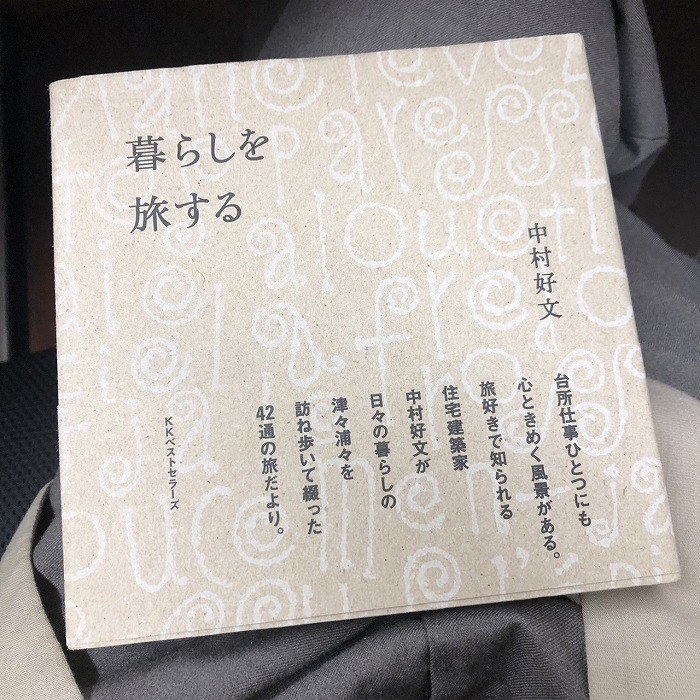 暮らしを
旅する
中村好文
台所仕事ひとつにも
心ときめく風景がある。
旅好きで知られる
住宅建築家
中村好文が
日々の暮らしの
津々浦々を
訪ね歩いて綴った
42通の旅だより。
KKベストセラーズ